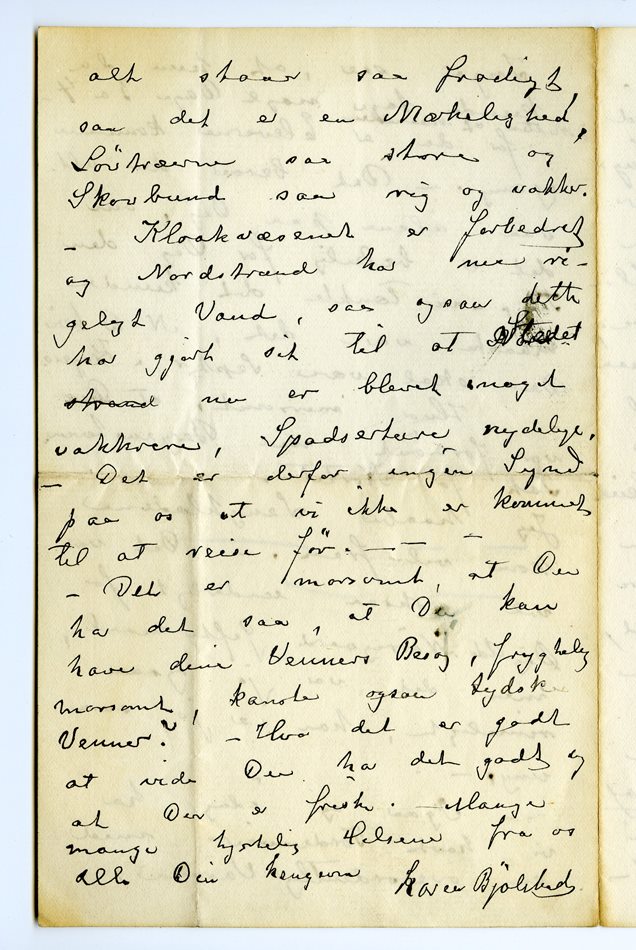 alt staar saa frodigt,
saa det er en Mærkelighed,
Lövtræerne saa store og
Skovbund saa rig og vakker.
– Kloakvæsenet er forbedret
og Nordstrand har nu ri-
geligt Vand, saa ogsaa dette
har gjort sit til at Stedet
strand nu er blevet noget
vakkrere, Spadserture nydelige.
– Det er derfor ingen Synd
paa os at vi ikke er kommet
til at reise för. – – –
– Det er morsomt, at Du
har det saa, at Du kan
have dine Venners Besøg, frygtelig
morsomt, kanske ogsaa tydske
Venner? – Hvor det er godt
at vide Du har det godt og
at Du er frisk. – Mange
mange hjertelig Hilsener fra os
alle Din hengivne Karen Bjölstad